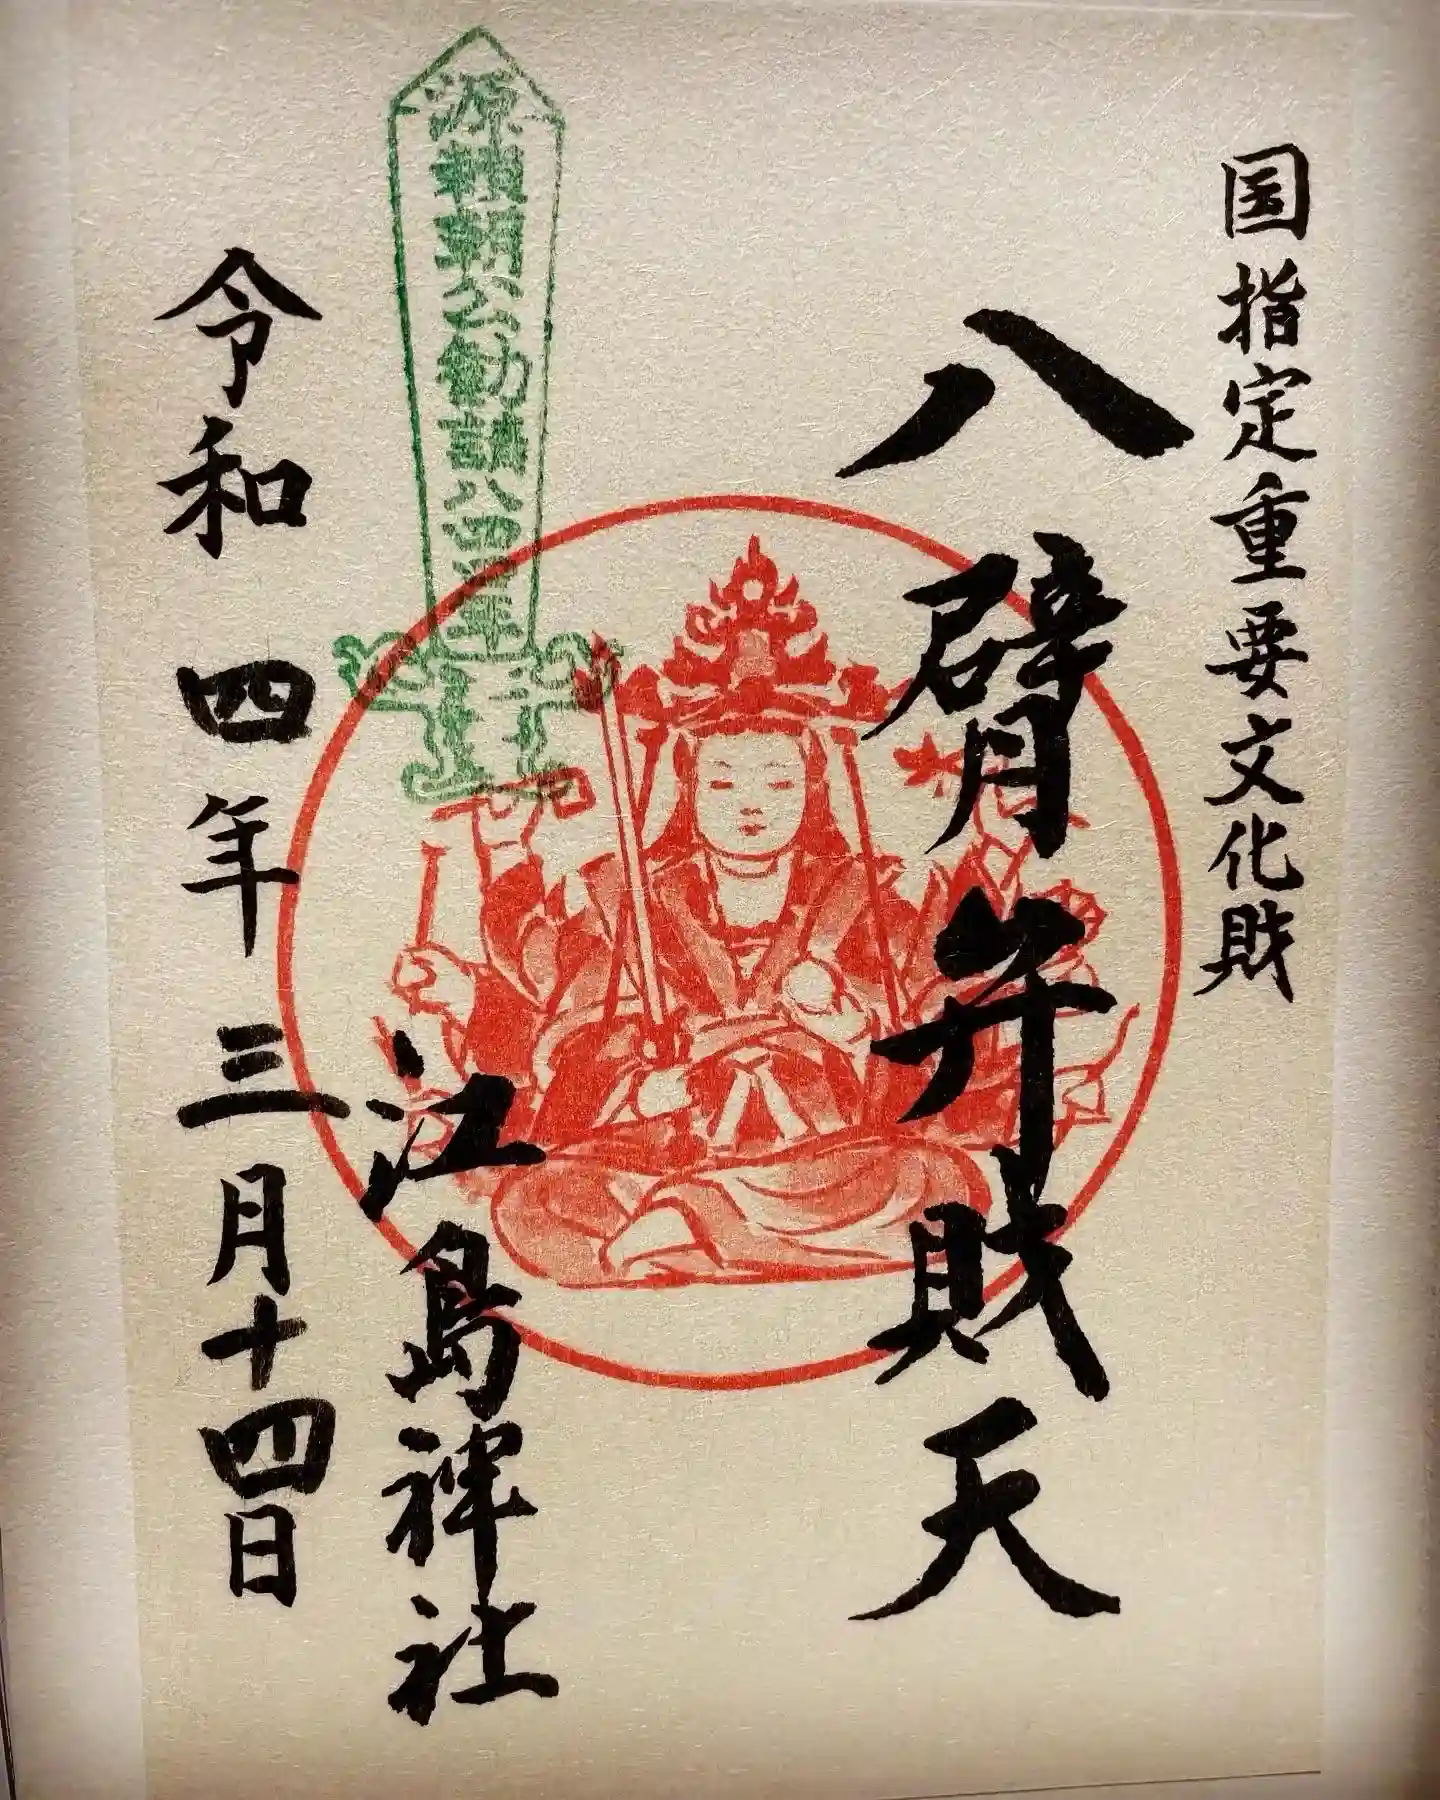 国指定重要文化財
八臂弁財天
源頼朝公勧請八四〇年
江島神社
令和四年三月十四日